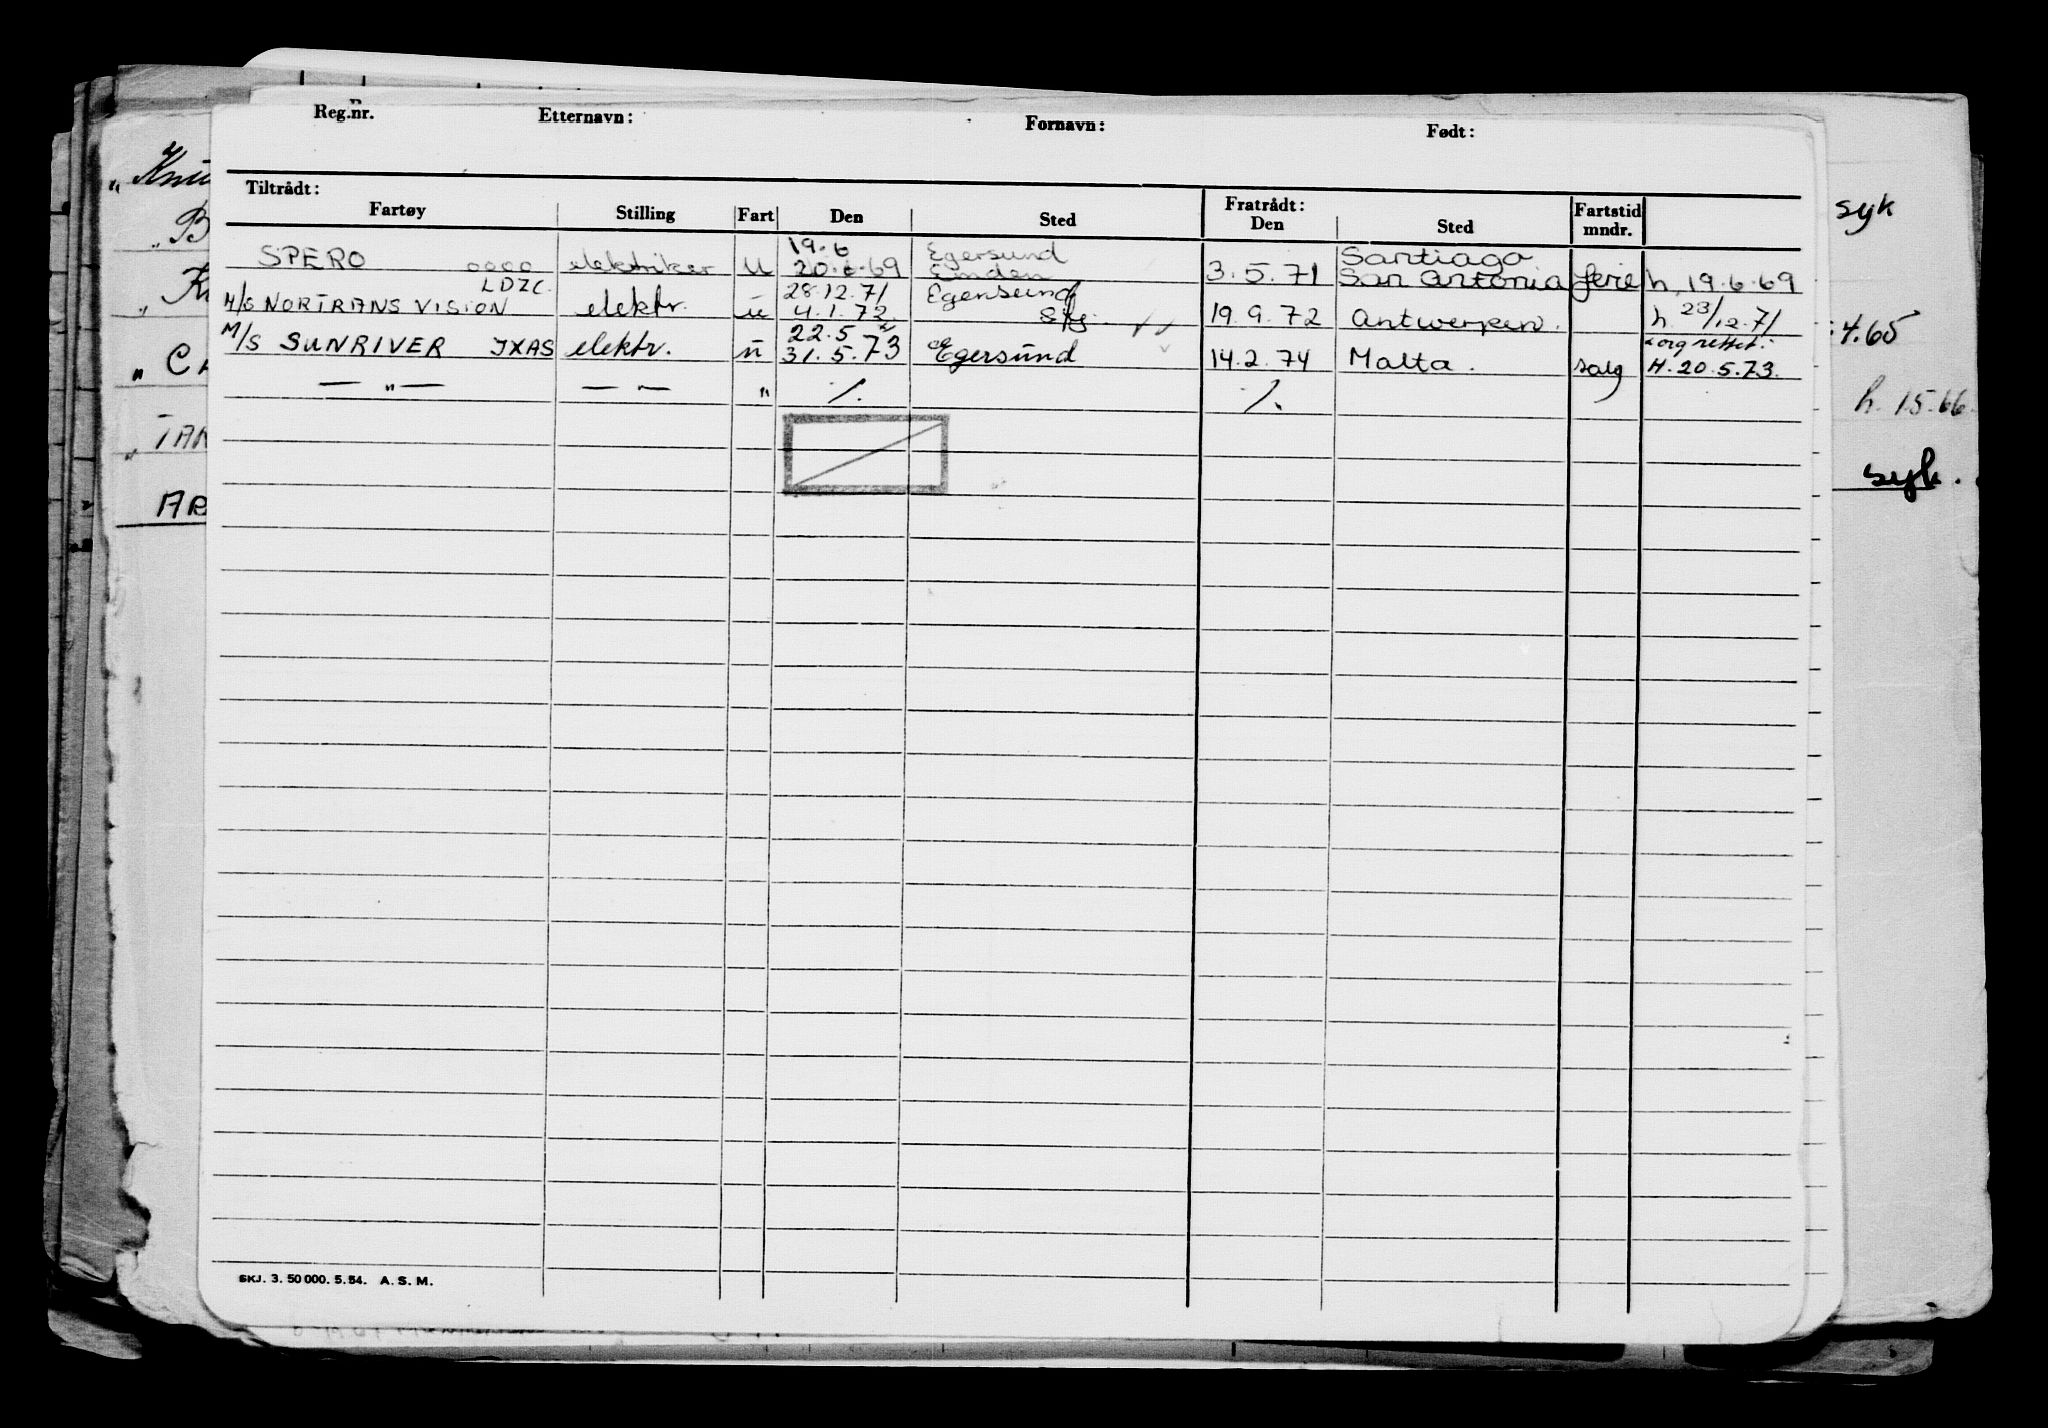 Reg.nr. Etternavn: Fornavn: Født:
Tiltrådt: Fratrådt:
Fartøy Stilling Fart Den Sted Den Sted Fartstid mndr.
19.6 Egersund Santiago
SPERO oooo elektriker u 20.6.69 Emden 3.5.71 San Antonia ferie h. 19.6.69
LDZC 28.12.71 Egersund
M/S NORTRANS VISION elektr. u 4.1.72 19.9.72 Antwerpen. h. 23/12.71
22.5
M/S SUNRIVER JXAS elektr. u 31.5.73 Egersund 14.2.74 Malta. salg H. 20.5.73.
— " — — " — " ·/. ·/.
SKJ. 3. 50 000. 5.54. A. S. M.
syk
4.65
h. 1.5.66.
syk.